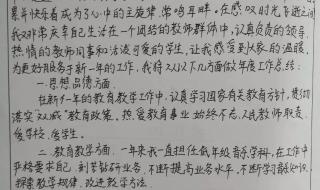 累并快乐着成为了心中的主旋律,常鸣耳畔。在感叹时光飞逝之间
我又非常庆幸自己生活在一个团结的教师群体中,认真负责的领导、
热情的教师同事和活泼可爱的学生,让我感受到大家的温暖。
为更好服务于新一年的工作,我将从以下几方面做年度工作总结:
一、思想品德方面
在新的一年的教育教学工作中,认真学习国家有关教育方针,
落实“双减”教育政策。热爱教育事业,始终不忘人民教师职责,
爱学校、爱学生。
二、教育教学方面,一年来我一直担任低年级音乐学科,在工作中
严格要求自己,刻苦钻研业务,不断提高业务水平,不断学习新知识,
探索教学规律,改进教学方法。